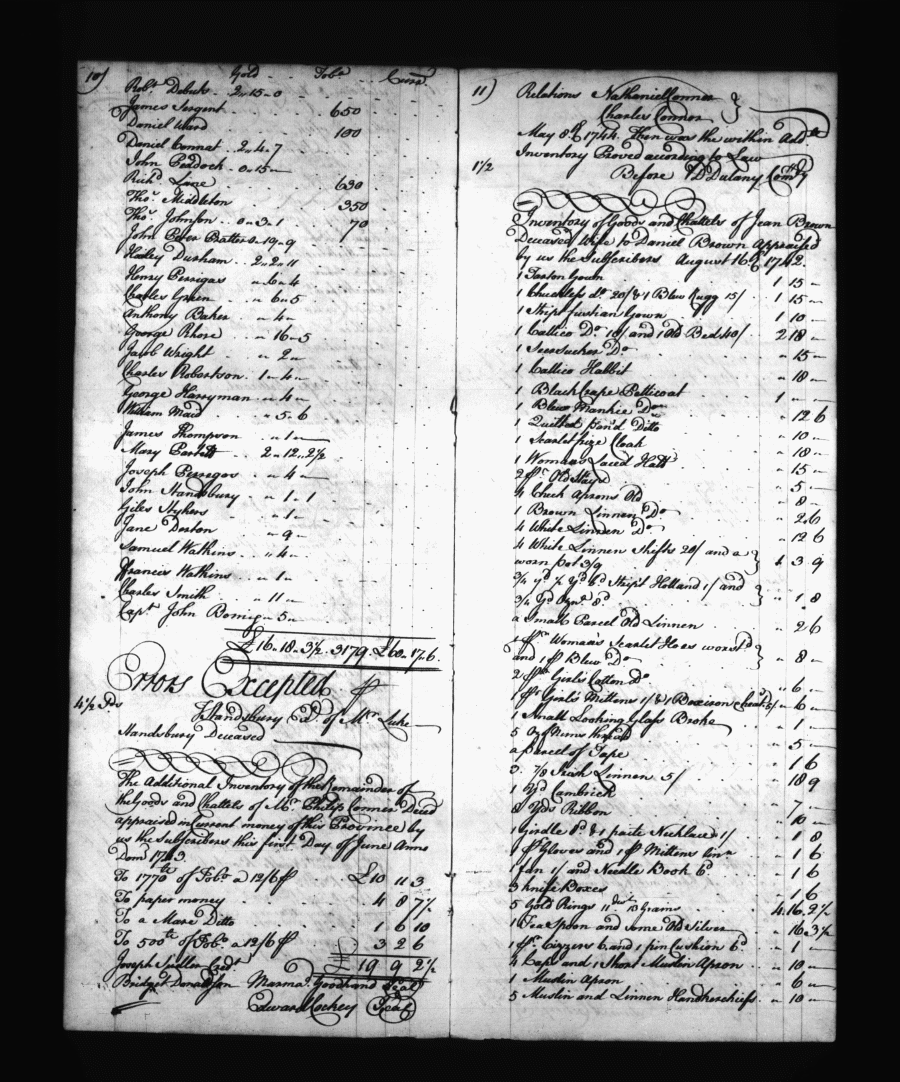 10)
Gold Tobo Curr
Robt Debuts 2-15-0
James Sergent 650
Daniel Ward 100
Daniel Connat 2-4-7
John Peddock 0-15-
Richd Lane 630
Thos Middleton 350
Thos Johnson 0-3-1 70
John Peter 2-19-9
Durham 2-2-11
Henry Perrigos -6-4
Charles Green -6-5
Anthony Baker -4-
George -16-5
Jacob Wright -2-
Charles Robertson 1-4-
George Harryman -4-
William -5-6
James Thompson -1-
Mary 2-12-2½
Joseph Perregos -4-
John Standsbury -1-1
Giles -1-
Jane -9-
Samuel Watkins -4-
Francis Watkins -1-
Charles Smith -11-
Capt John -5-
£16-18-3½ 3179 £60-17-6
Errors Excepted
4½ Pds
T Standsbury of Mr Luke
Standsbury Deceased
The Additional Inventory of the Remainder of
the Goods and Chattels of Mr Philip Connor Deced
appraised in Current money of this Province by
us the Subscribers this first Day of June Anno
Dom 1743
To 1770 lb of Tobo a 12/6 £10 11 3
To paper money 4 8 7½
To a Mare Ditto 1 6 10
To 500 lb of Tobo a 12/6 3 2 6
£19 9 2½
Joseph Sudler Credr
Bridget Donaldson Marma Goodhand Seal
Edward Cockey Seal
11)
Relations Nathaniel Connor
Charles Connor
May 8th 1744 Then was the within Addl
Inventory Proved according to Law
1½ Before D Dulany
Inventory of Goods and Chattels of Jean Brown
Deceased Wife to Daniel Brown Appraised
by us the Subscribers August 16th 1742
1 Tartan Gown 1 15 -
1 do 20/ & 1 Blew Rugg 15/ 1 15 -
1 Stript fushan Gown 1 10 -
1 Callico Do 18/ and 1 Old Bed 40/ 2 18 -
1 Seersucker Do - 15 -
1 Callico Habbit - 18 -
1 Black Crape Petticoat 1 - -
1 Blew Do - 12 6
1 Quilted Ditto - 10 -
1 Scarlet Cloak - 18 -
1 Womans Laced Hatt - 15 -
2 pr Old Stays - 5 -
4 Check Aprons Old - 8 -
1 Brown Linnen Do - 2 6
4 White Linnen Do - 12 6
4 White Linnen Shifts 20/ and a
worn Do 3/9 1 3 9
3/4 yd Stript Holland 1/ and
3/4 yd 8d - 1 8
a Small Parcel Old Linnen - 2 6
1 pr Womans Scarlet Hoes worstd
and 1 pr Blew Do - 8 -
2 pr Girls Cotton Do - 6 -
1 pr Girls Mittens 1/ & 1 5/ - 6 -
1 Small Looking Glass Broke - 1 -
5 thread - 5 -
a parcel of Tape - 1 6
3 7/8 Irish Linnen 5/ - 18 9
1 yd Cambrick - 7 -
8 yds Ribbon - 10 -
1 Girdle 8d & 1 paste Necklace 1/ - 1 8
1 pr Gloves and 1 pr Mittens - 1 6
1 fan 1/ and Needle Book 6d - 1 6
3 knife Boxes - 1 6
5 Gold Rings 11 dwt 13 Grains 4 16 2½
1 Tea Spoon and Some Old Silver - 16 3½
1 pr Cizzers 6 and 1 pin Cushion 6d - 1 -
4 Caps and 1 Short Muslin Apron - 10 -
1 Muslin Apron - 6 -
5 Muslin and Linnen Handkerchiefs - 10 -